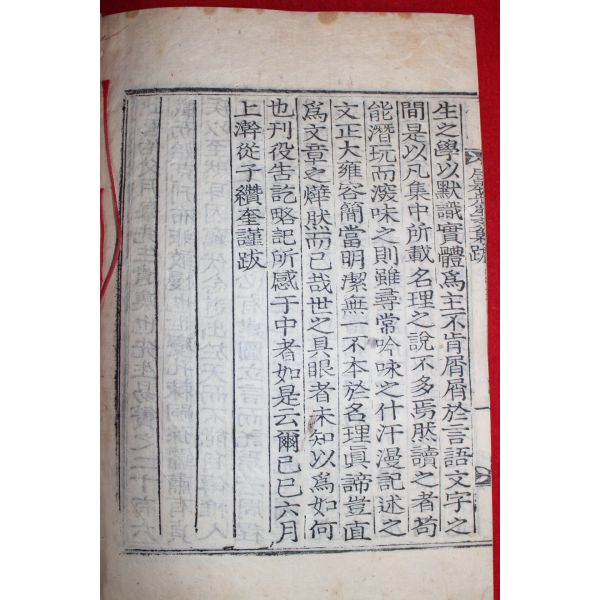 生之學以默識實體爲主不肯屑屑於言語文字之
間是以凡集中所載名理之說不多焉然讀之者苟
能潛玩而㴱味之則雖尋常吟咏之什汗漫記述之
文正大雍容簡當明潔無一不本於名理眞諦豈直
爲文章之燁然而已哉世之具眼者未知以爲如何
也刊役告訖略記所感于中者如是云爾己巳六月
上澣從子纘奎謹跋
集跋
一